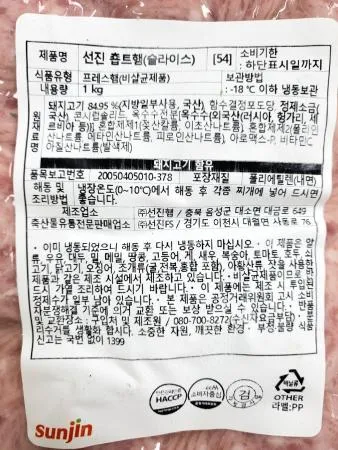 제품명 선진 춉트햄(슬라이스) [54] 소비기한 : 하단표시일까지
식품유형 프레스햄(비살균제품) 보관방법
내용량 1 kg : -18 ℃ 이하 냉동보관
원재료명 돼지고기 84.95 %(지방일부사용, 국산), 함수결정포도당, 정제소금(
국산), 콘시럽솔리드, 옥수수전분[옥수수(외국산(러시아, 헝가리, 세
르비아 등))], 혼합제제1(젖산칼륨, 이초산나트륨), 혼합제제2(폴리인
산나트륨, 메타인산나트륨, 피로인산나트륨), 아로맥스-P, 비타민C
아질산나트륨(발색제)
돼지고기 함유
품목보고번호 20050405010-378 포장재질 폴리에틸렌(내면)
해동 및 조리방법 냉장온도(0~10℃)에서 해동 후 각종 찌개에 넣어 드시면
좋습니다.
제조업소 ㈜선진햄 / 충북 음성군 대소면 대금로 649
축산물유통전문판매업소 ㈜선진FS / 경기도 이천시 대월면 사동로 76
· 이미 냉동되었으니 해동 후 다시 냉동하지 마십시오. · 이 제품은 알
류, 우유, 대두, 밀, 메밀, 땅콩, 고등어, 게, 새우, 복숭아, 토마토, 호두, 쇠
고기, 닭고기, 오징어, 조개류(굴,전복,홍합 포함), 아황산류, 잣을 사용한
제품과 같은 제조 시설에서 제조하고 있습니다. · 비살균제품이므로 반드
시 가열 조리하여 드시기 바랍니다. · 이 제품에는 제조 시 투입된
정제수가 일부 남아 있습니다. · 본 제품은 공정거래위원회 고시 소비
자분쟁해결 기준에 의거 교환 또는 보상 받으실 수 있습니다. · 반품
및 교환장소 : 구입처 및 제조원 / 080-700-8272(수신자요금부담)
리수거를 생활화 합시다. 소중한 자원, 깨끗한 환경 · 부정·불량 식품
신고는 국번 없이 1399
HACCP
소비자중심
검
비닐류
OTHER
라벨:PP
sunjin